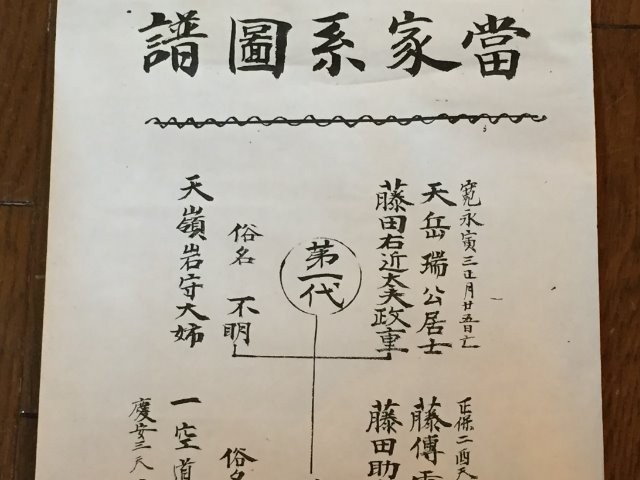 當家系圖譜
寛永寅三正月廿五日亡
天岳瑞公居士
藤田右近太夫政重
第一代
俗名 不明
天嶺岩守大姉
正保二酉天
藤傳
藤田助
俗名
一空道
慶安三天